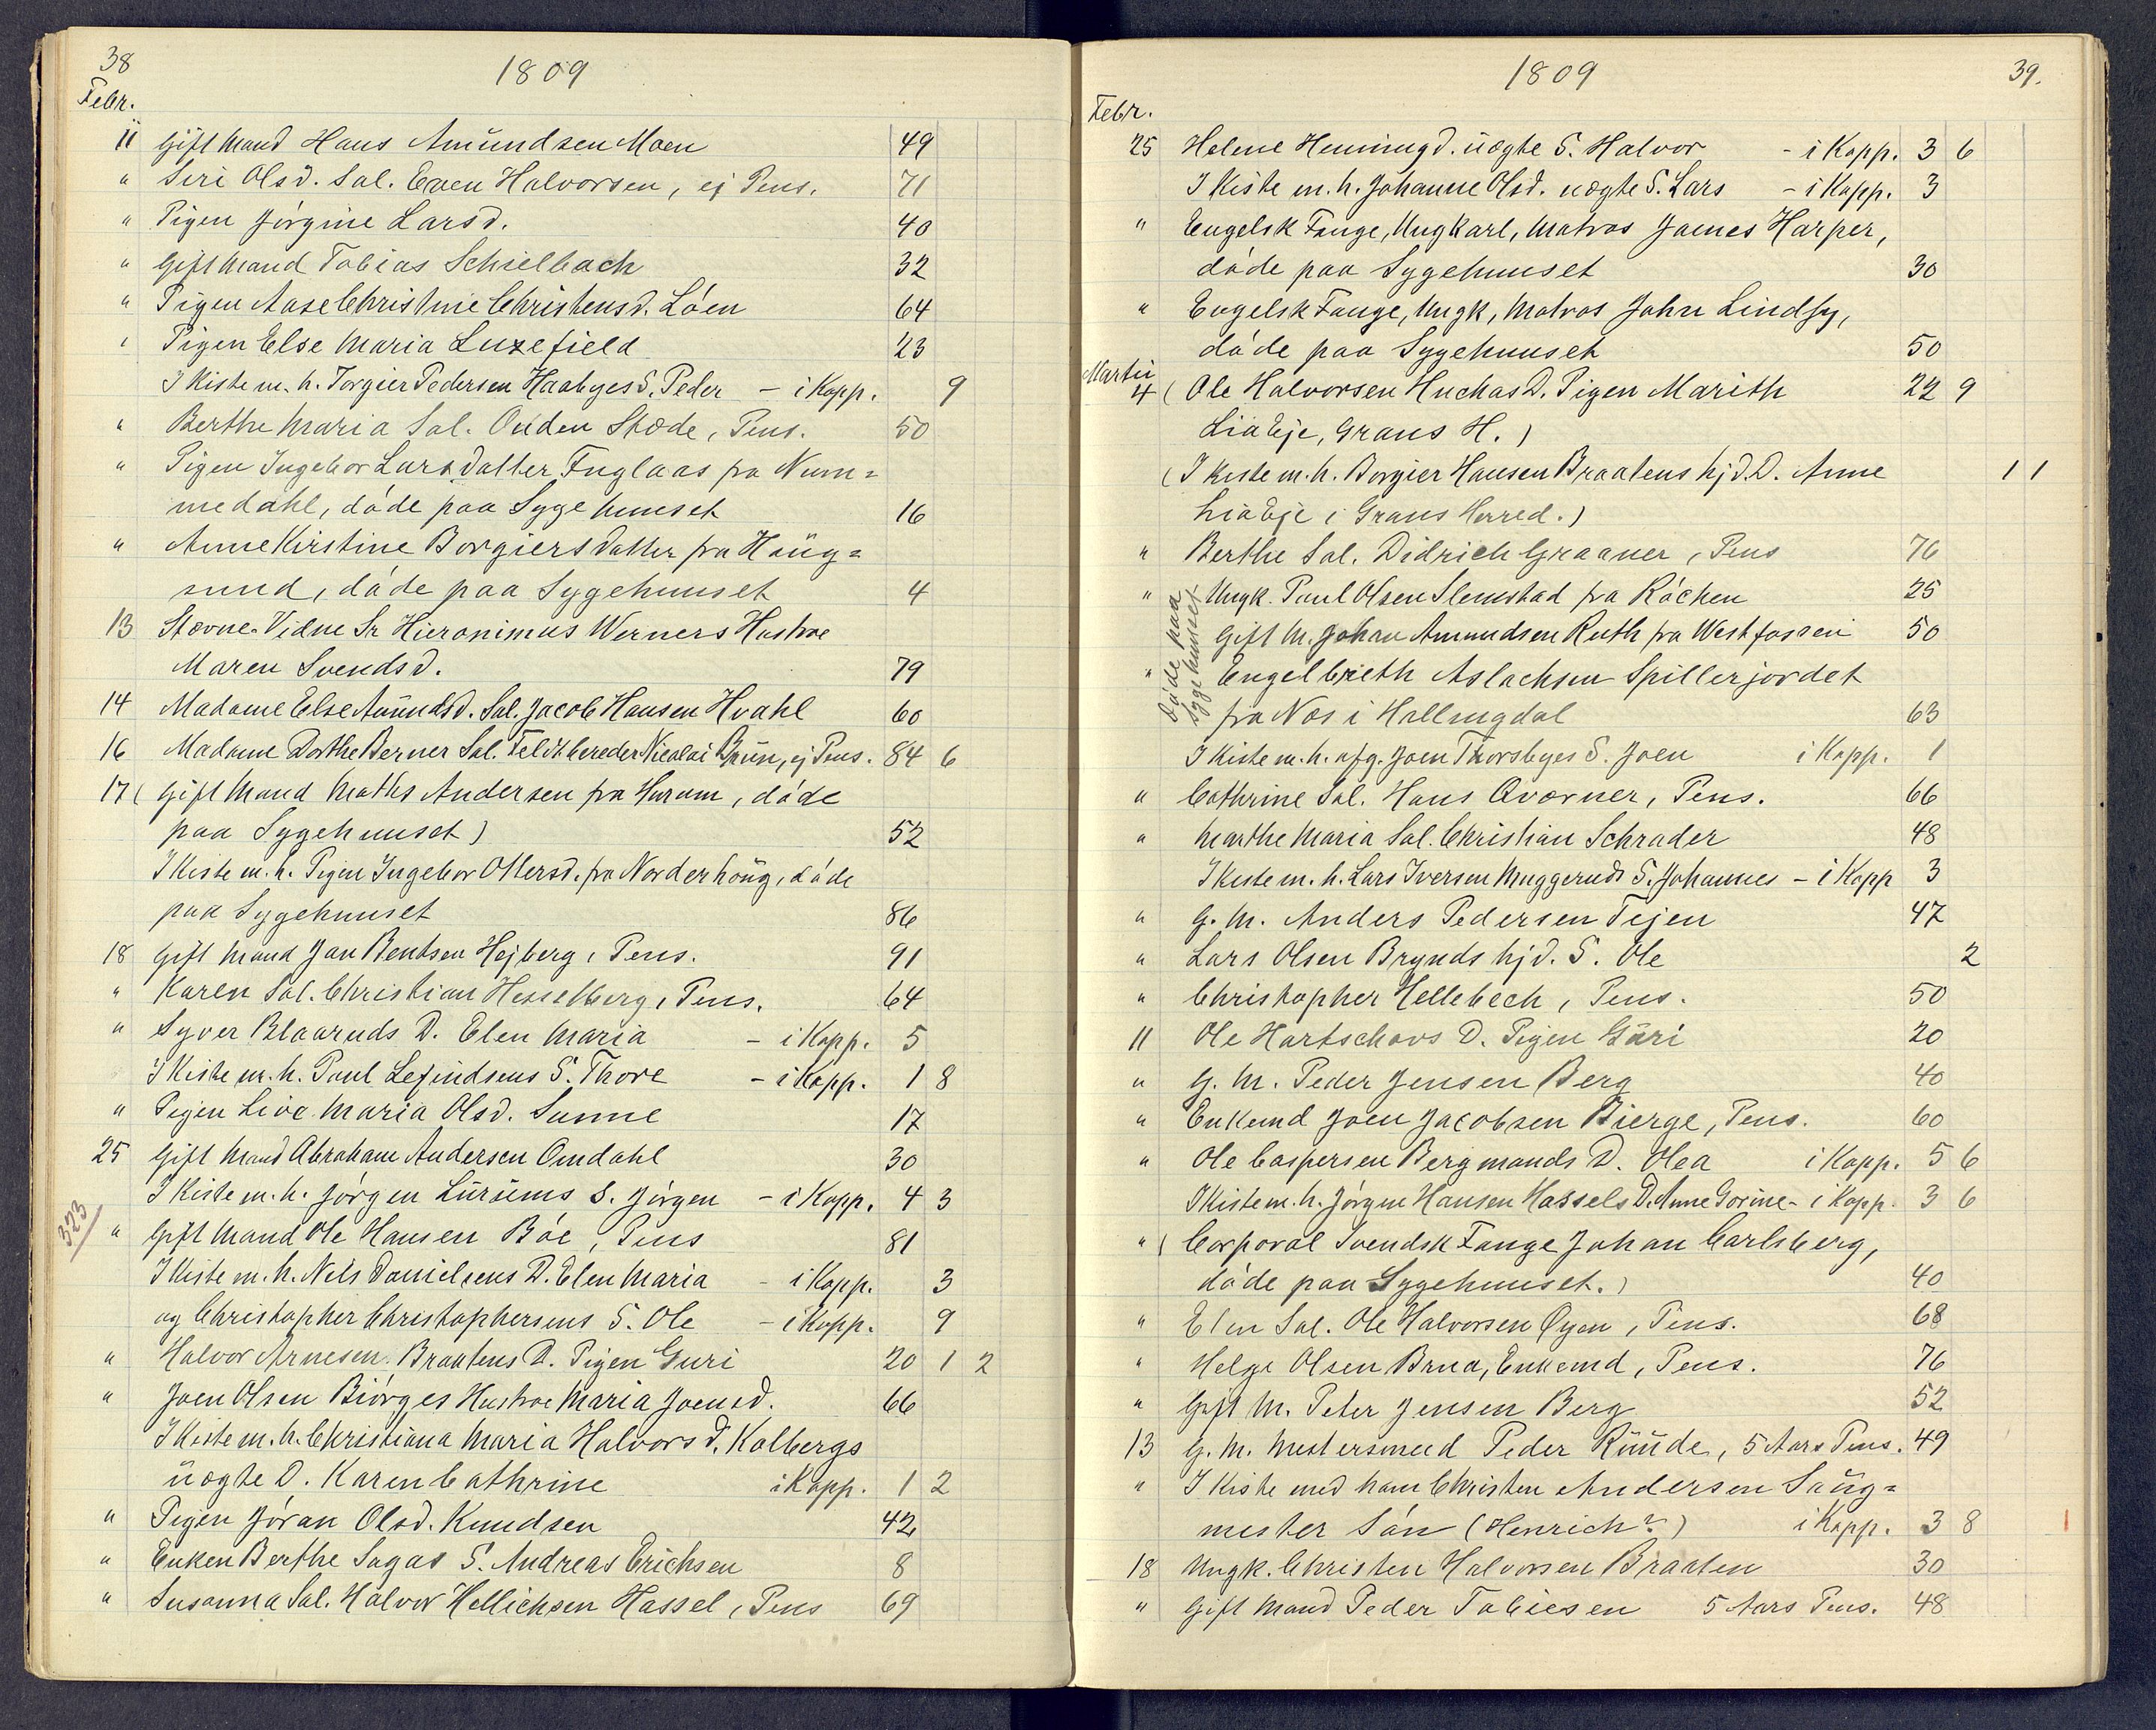 38
1809
Febr.
11 Gift Mand Hans Amundsen Moen 49
" Siri Olsd. Sal. Even Halvorsen, ej Pens. 71
" Pigen Jörgine Larsd. 40
" Gift Mand Tobias Schielbach 32
" Pigen Aase Christine Christensd. Löen 64
" Pigen Else Maria Luzefield 23
I Kiste m. h. Torgier Pedersen Haabyes S. Peder - i Kopp. 9
" Berthe Maria Sal. Ouden Støde, Pens. 50
" Pigen Ingebor Larsdatter Fuglaas fra Num=
medahl, döde paa Sygehuuset 16
" Anne Kirstine Borgiersdatter fra Houg=
sund, döde paa Sygehuuset 4
13 Stævne-Vidne Sr Hieronimus Werners Hustroe
Maren Svendsd. 79
14 Madame Else Amundsd. Sal. Jacob Hansen Hvahl 60
16 Madame Dorthe Berner Sal. Feldtbereder Nicolai Bruun, ej Pens. 84 6
17 ( Gift Mand Mathis Andersen fra Hurum, döde
paa Sygehuuset) 52
I Kiste m. h. Pigen Ingebor Ottersd. fra Norderhoug, döde
paa Sygehuuset 86
18 Gift Mand Jan Bentsen Hejberg, Pens. 91
" Karen Sal. Christian Hesselberg, Pens. 64
" Syver Blaaruds D. Elen Maria - i Kopp. 5
I Kiste m. h. Poul Lefindsens S. Thore - i Kopp. 1 8
" Pigen Live Maria Olsd. Sunne 17
25 Gift Mand Abraham Andersen Omdahl 30
I Kiste m. h. Jörgen Lurums S. Jörgen - i Kopp. 4 3
323
" Gift Mand Ole Hansen Böe, Pens 81
I Kiste m. h. Nels Danielsens D. Elen Maria - i Kopp. 3
og Christopher Christophersens S. Ole - i Kopp. 9
" Halvor Arnesen Braatens D. Pigen Guri 20 1 2
" Joen Olsen Biörges Hustroe Maria Joensd. 66
I Kiste m. h. Christiana Maria Halvorsd. Kolbergs
uægte D. Karen Cathrine i Kopp. 1 2
" Pigen Jöran Olsd. Knudsen 42
" Enken Berthe Sagas S. Andreas Erichsen 8
" Susanna Sal. Halvor Hellichsen Hassel, Pens 69
1809
39.
Febr.
25 Helene Henningd. uægte S. Halvor - i Kopp. 3 6
I Kiste m. h. Johanne Olsd. uægte S. Lars - i Kopp. 3
" Engelsk Fange, Ungkarl, Matros James Harper,
döde paa Sygehuuset 30
" Engelsk Fange, Ungk, Matros John Lindsy,
döde paa Sygehuuset 50
Martii
4 ( Ole Halvorsen Huchas D. Pigen Marith 22 9
Lia Eje, Grans H. )
( I Kiste m. h. Borgier Hansen Braatens hjd. D. Anne 1 1
Lia Eje i Grans Herred. )
" Berthe Sal. Didrich Graaner, Pens 76
" Ungk. Poul Olsen Slemstad fra Röchen 25
Döde paa
Sygehuuset
Gift M. Johan Amundsen Ruth fra Westfossen 50
" Engelbrieth Aslachsen Spillerjordet
fra Næs i Hallingdal 63
I Kiste m. h. afg. Joen Thorsbyes S. Joen i Kopp. 1
" Cathrine Sal. Hans Qværner, Pens. 66
" Marthe Maria Sal. Christian Schrader 48
I Kiste m. h. Lars Iversen Muggeruds S. Johannes - i Kopp 3
" G. M. Anders Pedersen Tejen 47
" Lars Olsen Brynds hjd. S. Ole 2
" Christopher Hellebech, Pens. 50
11 Ole Hartschovs D. Pigen Guri 20
" G. M. Peder Jensen Berg 40
" Enkemd Joen Jacobsen Bierge, Pens. 60
" Ole Caspersen Bergmands D. Olea i Kopp. 5 6
I Kiste m. h. Jörgen Hansen Hassels D. Anne Gorine - i Kopp. 3 6
" ( Corporal Svendsk Fange Johan Carlsberg,
döde paa Sygehuuset. ) 40
" Elen Sal. Ole Halvorsen Øyen, Pens. 68
" Helge Olsen Brua, Enkemd, Pens. 76
" Gift M. Peter Jensen Berg 52
13 G. M. Mestersmed Peder Ruude, 5 Aars Pens. 49
" I Kiste med ham Christen Andersen Saug=
mester Sön (Henrich?) i Kopp. 3 8
18 Ungk. Christen Halvorsen Braaten 30
" Gift Mand Peder Tobiesen 5 Aars Pens. 48